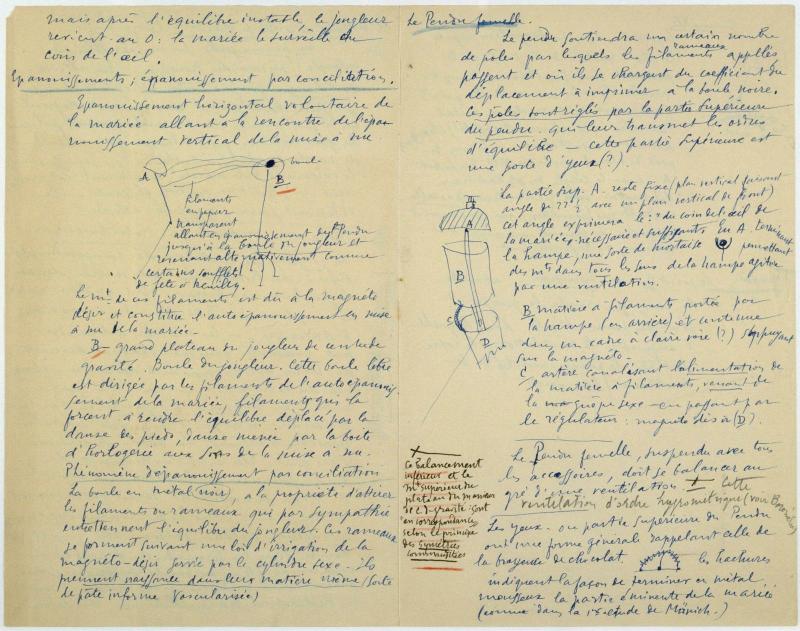 mais après l'équilibre instable, le jongleur
revient au O : la mariée le surveille du
coin de l'œil.
Epanouissements ; épanouissement par conciliation.
Epanouissement horizontal volontaire de
la mariée allant à la rencontre de l'épa-
nouissement vertical de la mise à nu
A
boule
B
filaments
en papier
transparent
allant en épanouissement du Pendu
jusqu'à la boule du jongleur et
revenant alternativement comme
certains soufflets
de fête à Neuilly.
Le mt de ces filaments est dû à la magnéto
désir et constitue l'auto épanouissement en mise
à nu de la mariée -
B - grand plateau du jongleur de centre de
gravité. Boule du jongleur. Cette boule libre
est dirigée par les filaments de l'auto epanouis
sement de la mariée, filaments qui la
forcent à rendre l'équilibre déplacé par la
danse des pieds, danse menée par la boite
d'horlogerie aux sons de la mise à nu.
Phénomène d'épanouissement par conciliation
La boule en métal (noir), a la propriété d'attirer
les filaments ou rameaux qui par sympathie
entretiennent l'équilibre du jongleur. Ces rameaux
se forment suivant une loi d'irrigation de la
magnéto-désir servie par le cylindre sexe. Ils
prennent naissance dans leur matière même (sorte
de pâte informe vascularisée)
Le Pendu femelle.
Le pendu soutiendra un certain nombre
de pôles par lesquels les filaments
rameaux
appellés
passent et où ils se chargent du coefficient du
déplacement à imprimer à la boule noire.
Ces pôles sont réglés par la partie supérieure
du pendu. qui leur transmet les ordres
d'équilibre - cette partie supérieure est
une sorte d'yeux (?).
A
B
C
D
la partie sup. A. reste fixe (plan vertical faisant
angle de 22° ½ avec un plan vertical de front)
cet angle exprimera le : " du coin de l'œil de
la mariée nécessaire et suffisant. En A. terminant
la hampe, une sorte de mortaise permettant
des mts dans tous les sens de la hampe agitée
par une ventilation.
B matière à filaments portée par
la hampe (en arrière) et contenue
dans un cadre à claire voie (?) s'appuyant
sur la magnéto.
C artère canalisant l'alimentation de
la matière à filaments, venant de
la guêpe sexe - en passant par
le régulateur : magnéto désir (D).
Le Pendu femelle, suspendu avec tous
les accessoires, doit se balancer au
gré d'une ventilation X Cette
ventilation d'ordre hygrométrique (voir
X
Ce balancement
inférieur et le
mt supérieur du
plateau du manieur
de c. gravité sont
en correspondance
selon le principe
des symétries
commanditées
Les yeux. ou partie supérieure du Pendu
ont une forme général rappelant celle de
la broyeuse de chocolat. les hachures
indiquent la façon de terminer en métal
mousseux la partie éminente de la mariée
(comme dans la 1re étude de Münich.)